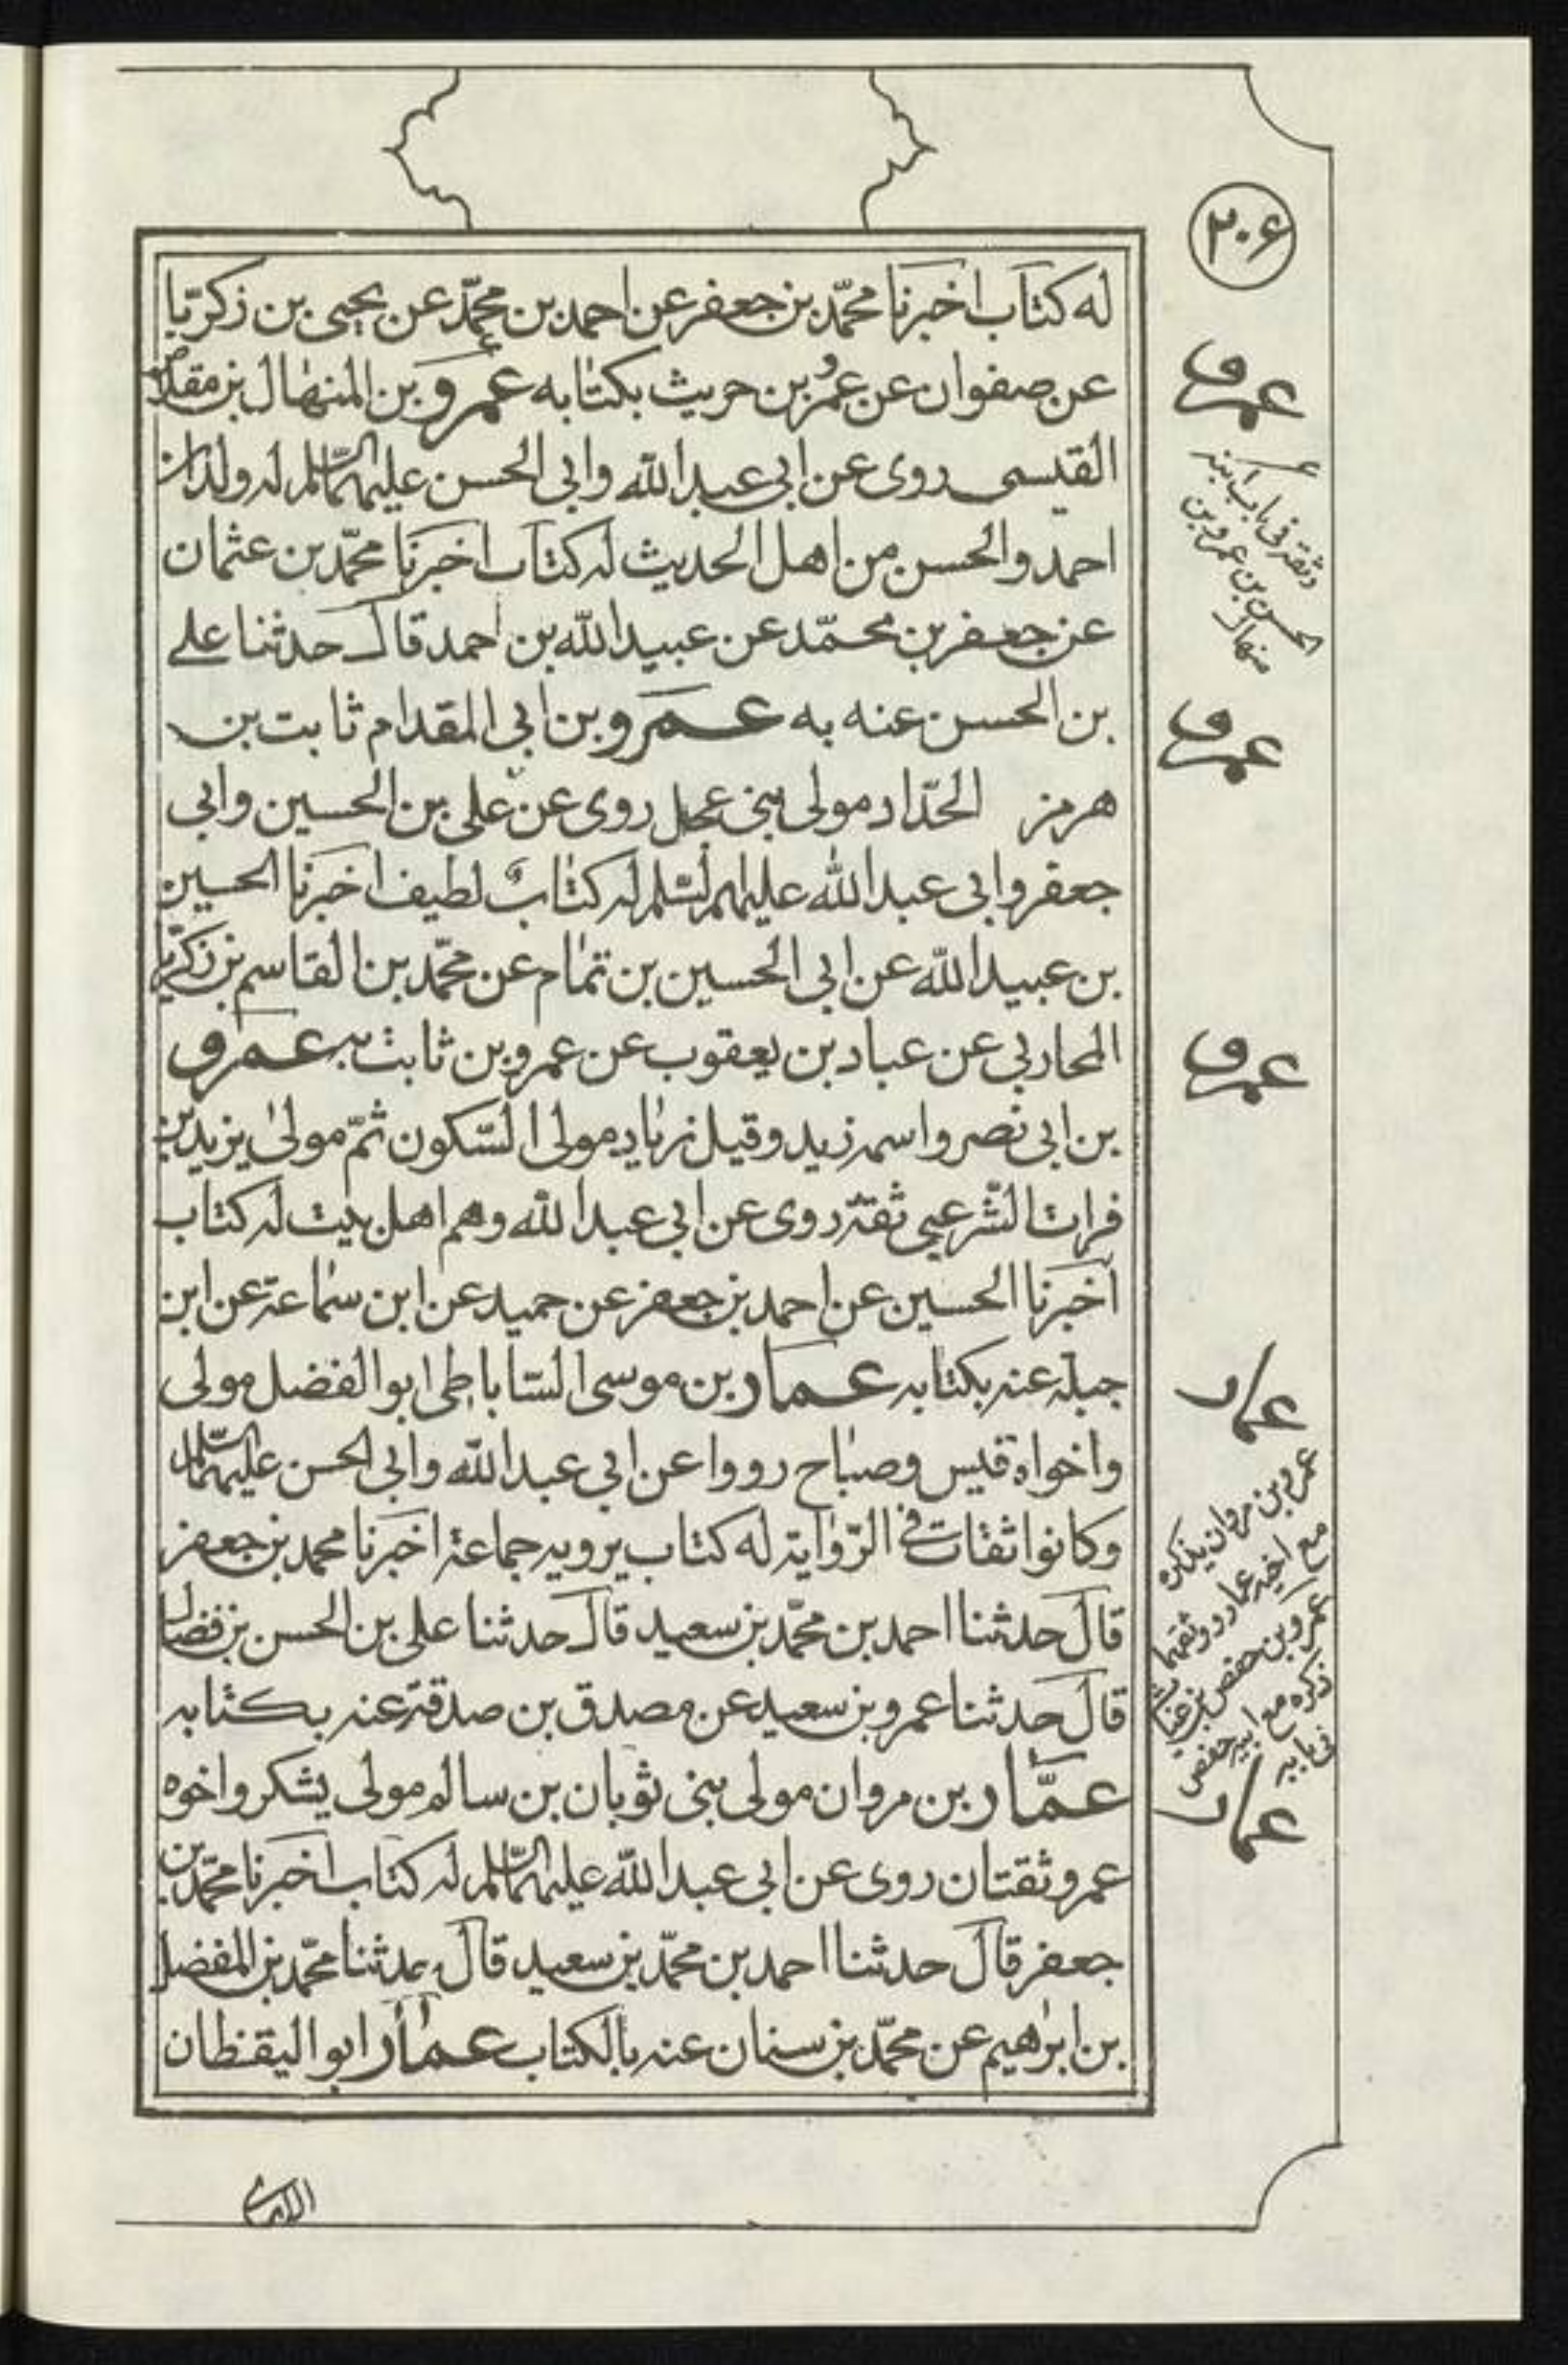 ٢٠٦
له كتاب اخبرنا محمّد بن جعفر عن احمد بن محمّد عن يحيى بن زكريّا
عن صفوان عن عمرو بن حريث بكتابه عمرو بن المنهال بن مقلاص
القيسى روى عن ابى عبد الله وابى الحسن عليهما السّلم له ولدان
احمد والحسن من اهل الحديث له كتاب اخبرنا محمّد بن عثمان
عن جعفر بن محمّد عن عبيد الله بن احمد قال حدثنا على
بن الحسن عنه به عمرو بن ابى المقدام ثابت بن
هرمز الحدّاد مولى بنى عجل روى عن على بن الحسين وابى
جعفر وابى عبد الله عليهم السّلم له كتاب لطيف اخبرنا الحسين
بن عبيد الله عن ابى الحسين بن تمام عن محمّد بن القاسم بن زكريّا
المحاربى عن عباد بن يعقوب عن عمرو بن ثابت به عمرو
بن ابى نصر واسمه زيد وقيل زياد مولى السّكون ثمّ مولى يزيد بن
فرات الشّرعبى ثقة روى عن ابى عبد الله وهم اهل بيت له كتاب
اخبرنا الحسين عن احمد بن جعفر عن حميد عن ابن سماعة عن ابن
جبلة عنه بكتابه عمار بن موسى السّاباطى ابو الفضل مولى
واخواه قيس وصباح رووا عن ابى عبد الله وابى الحسن عليهما السّلم
وكانوا ثقات فى الرّواية له كتاب يرويه جماعة اخبرنا محمد بن جعفر
قال حدثنا احمد بن محمّد بن سعيد قال حدثنا على بن الحسن بن فضال
قال حدثنا عمرو بن سعيد عن مصدق بن صدقة عنه بكتابه
عمّار بن مروان مولى بنى ثوبان بن سالم مولى يشكر واخوه
عمرو ثقتان روى عن ابى عبد الله عليهما السّلم له كتاب اخبرنا محمّد بن
جعفر قال حدثنا احمد بن محمّد بن سعيد قال حدثنا محمّد بن المفضل
بن ابراهيم عن محمّد بن سنان عنه بالكتاب عمار ابو اليقظان
عمرو
وثقه فى باب ابنه
الحسن بن عمرو بن
منهال
عمرو
عمرو
عمار
عمرو بن مروان يذكره
مع اخيه عمار ووثقهما
عمرو بن حفص بن غياث
ذكره مع ابيه حفص
فى بابه
عمار